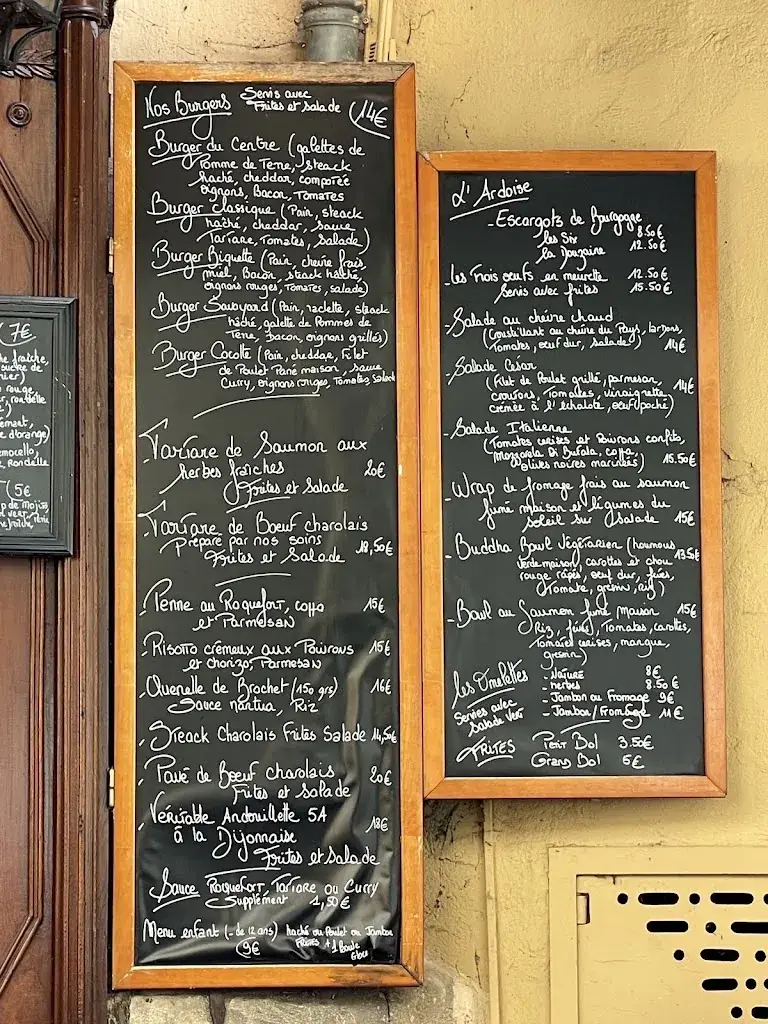 Nos Burgers Servis avec
Frites et Salade 14€
Burger du Centre (galettes de
Pomme de Terre, steack
haché, cheddar, compotée
oignons, Bacon, Tomates
Burger classique (Pain, steack
haché, cheddar, sauce
Tartare, Tomates, Salade)
Burger Biquette (Pain, chèvre frais,
miel, Bacon, steack hâché,
oignons rouges, Tomates, salade)
Burger Savoyard (Pain, raclette, steack
hâché, galette de Pommes de
Terre, Bacon, oignons grillés)
Burger Cocotte (Pain, cheddar, Filet
de Poulet Pané maison, sauce
Curry, oignons rouges, Tomates, salade
- Tartare de Saumon aux
herbes fraîches 20€
Frites et Salade
- Tartare de Boeuf charolais
Préparé par nos soins 18,50€
Frites et Salade
- Penne au Roquefort, coppa 15€
et Parmesan
- Risotto crémeux aux Poivrons 15€
et chorizo, Parmesan
- Quenelle de Brochet (150 grs) 16€
Sauce nantua, Riz
- Steack Charolais Frites Salade 14,50€
- Pavé de Boeuf charolais 20€
Frites et Salade
- Véritable Andouillette 5A
à la Dijonnaise 18€
Frites et Salade
Sauce Roquefort, Tartare ou Curry
Supplément 1,50€
Menu enfant (- de 12 ans) haché ou Poulet ou Jambon
9€ Frites + 1 Boule
Glace
L'Ardoise
- Escargots de Bourgogne
les Six 8.50€
la Douzaine 12.50€
- les Trois oeufs en meurette 12.50€
Servis avec frites 15.50€
- Salade au chèvre chaud
(Croustillant au chèvre du Pays, lardons,
Tomates, oeuf dur, salade) 14€
- Salade César
(Filet de Poulet grillé, parmesan, 14€
croutons, Tomates, vinaigrette
crémée à l'échalote, oeuf poché)
- Salade Italienne
(Tomates cerises et Poivrons confits,
Mozzarela Di Bufala, coppa,
olives noires marinées) 15.50€
- Wrap de fromage frais au saumon
fumé maison et légumes du
soleil sur salade 15€
- Buddha Bowl Végétarien (houmous 13.50€
verde maison, carottes et chou
rouge râpés, oeuf dur, fèves,
Tomate, gressin, riz)
- Bowl au Saumon fumé Maison 15€
Riz, fèves, Tomates, carottes,
Tomates cerises, mangue,
gressin)
les Omelettes - Nature 8€
- herbes 8.50€
Servies avec - Jambon ou Fromage 9€
Salade Vert - Jambon/Fromage 11€
Frites Petit Bol 3.50€
Grand Bol 5€
7€
fraîche,
sucre de
rouge
rondelle
d'orange)
Rondelle
(5€
de Mojito